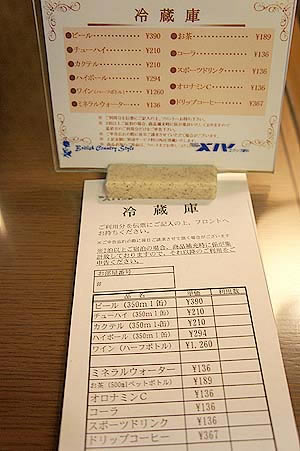 冷蔵庫
●ビール ¥390
●チューハイ ¥210
●カクテル ¥210
●ハイボール ¥294
●ワイン(ハーフボトル) ¥1,260
●ミネラルウォーター ¥136
●お茶 ¥189
●コーラ ¥136
●スポーツドリンク ¥136
●オロナミンC ¥136
●ドリップコーヒー ¥367
British Country Style
XIV
冷蔵庫
ご利用分を伝票にご記入の上、フロントへ
お持ちください。
お部屋番号
#
品名 単価 利用数
ビール(350ml缶) ¥390
チューハイ(350ml缶) ¥210
カクテル(350ml缶) ¥210
ハイボール(350ml缶) ¥294
ワイン(ハーフボトル) ¥1,260
ミネラルウォーター ¥136
お茶(500mlペットボトル) ¥189
オロナミンC ¥136
コーラ ¥136
スポーツドリンク ¥136
ドリップコーヒー ¥367